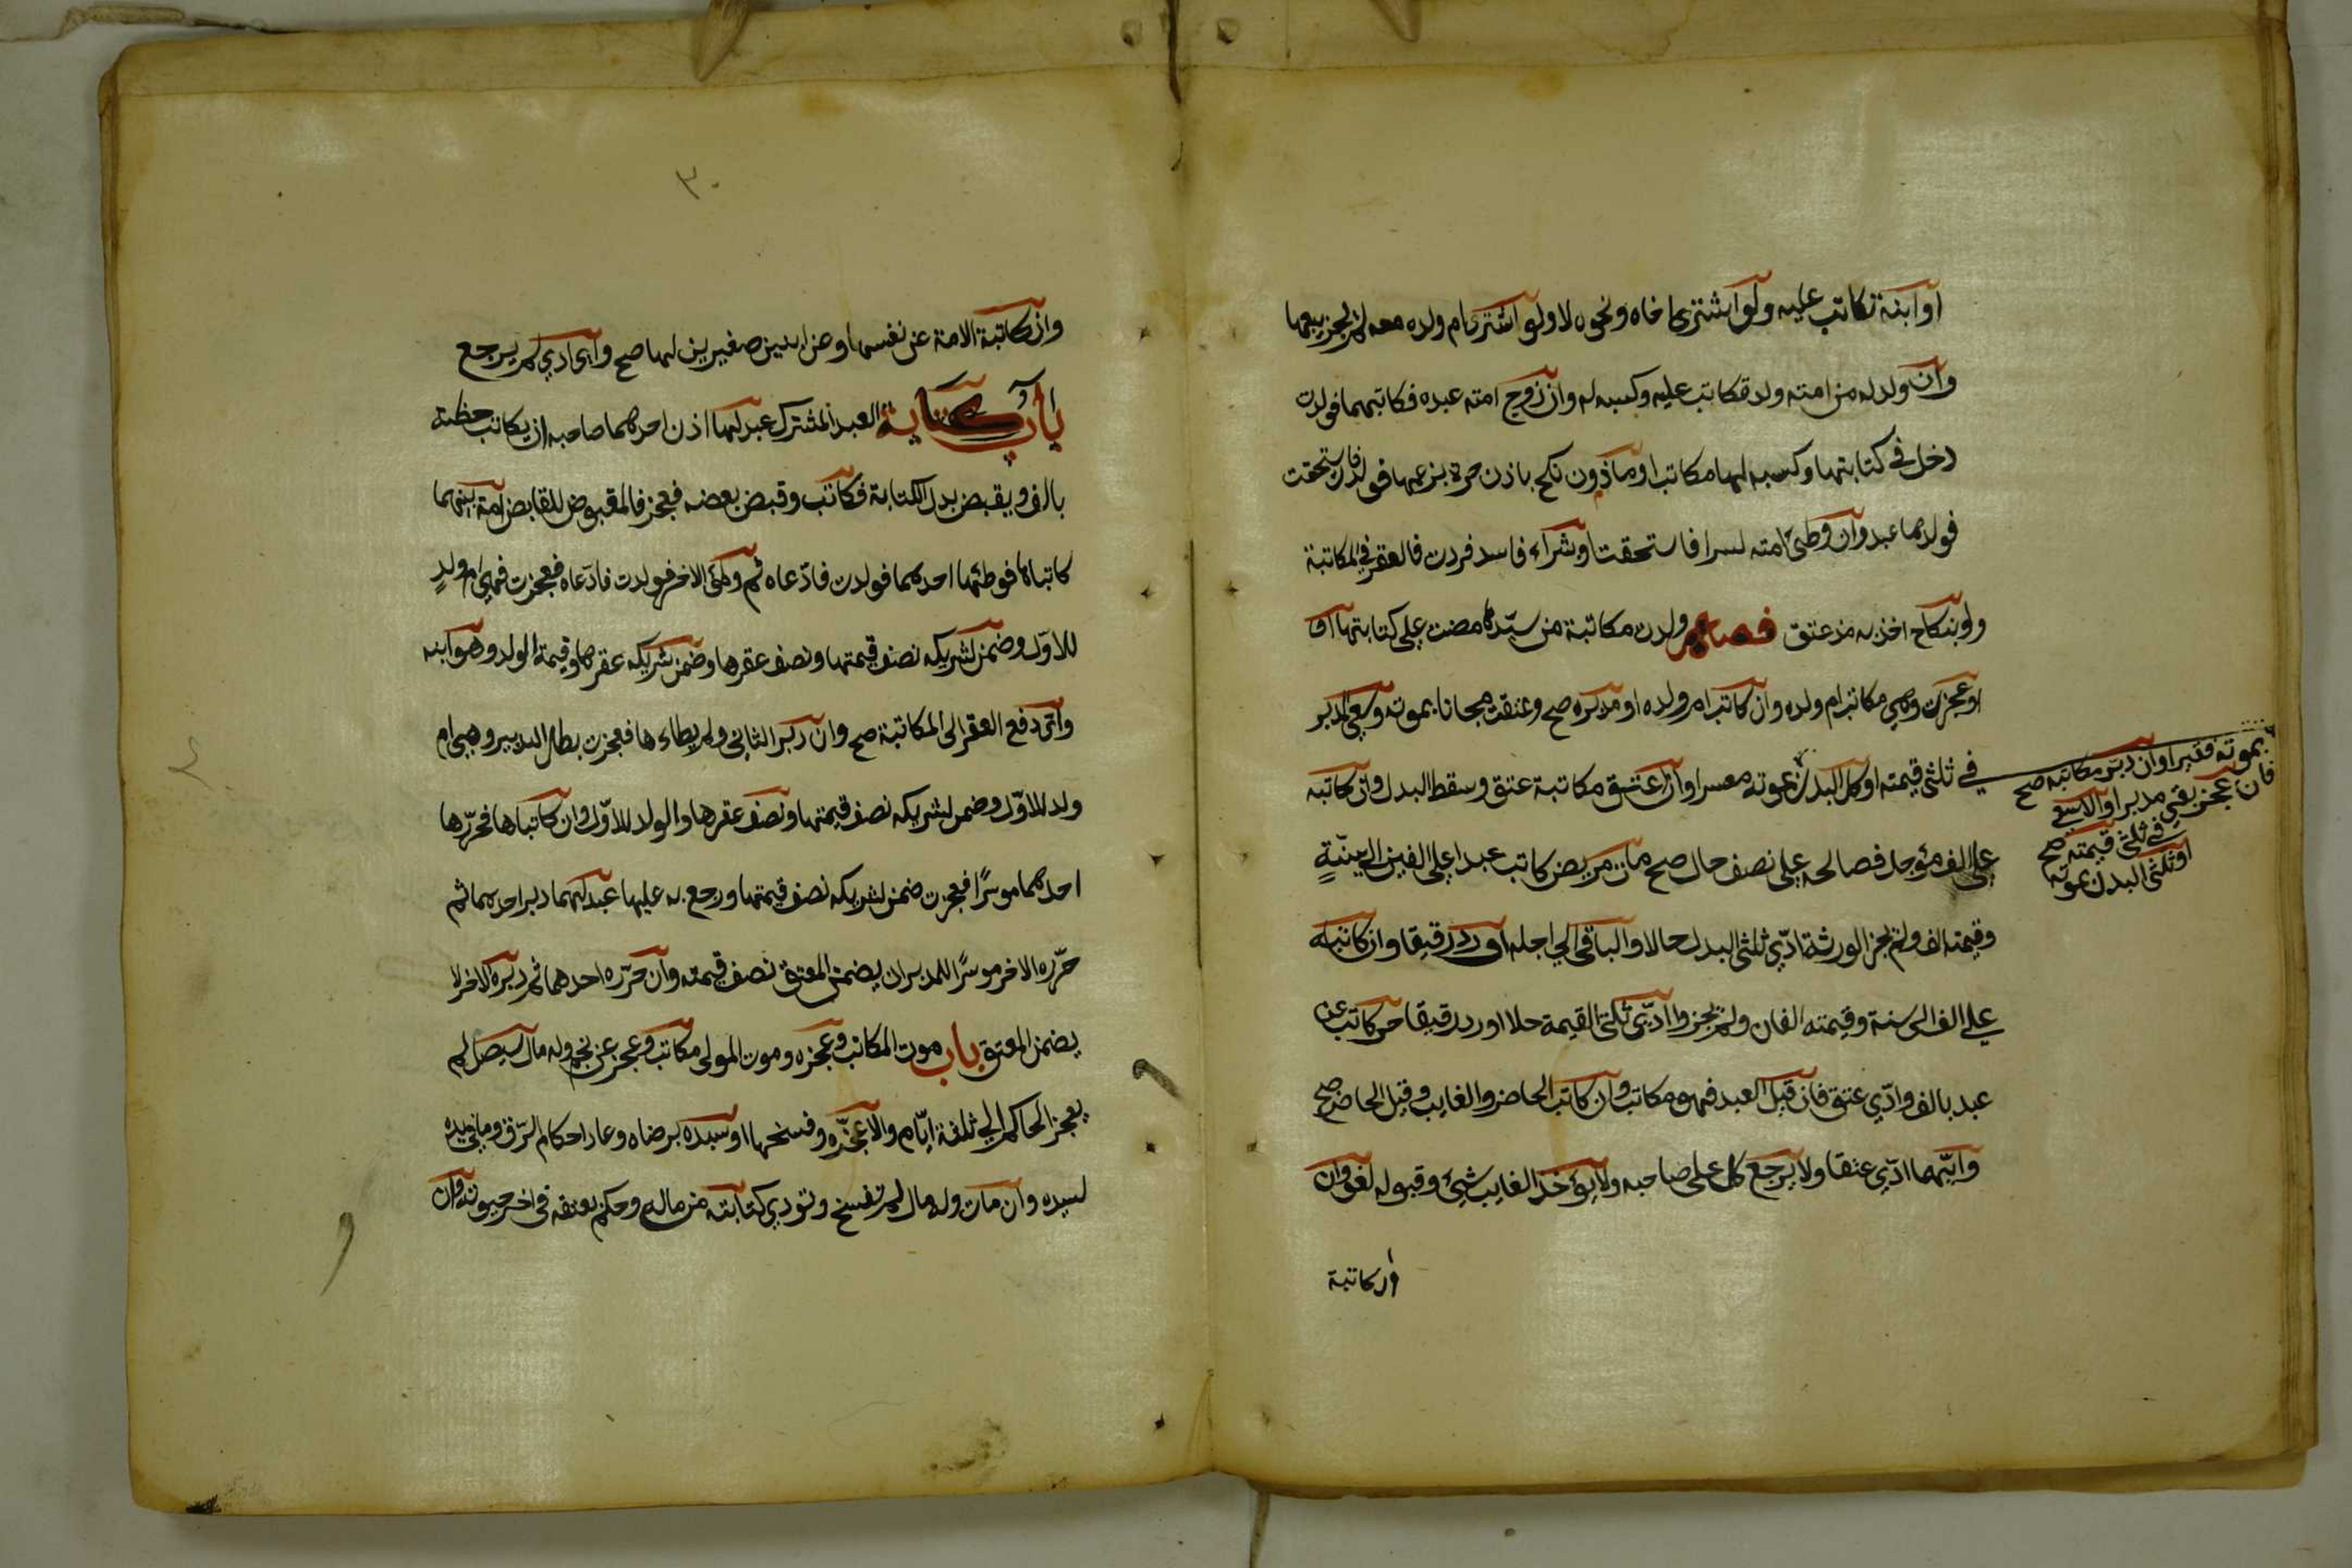 او ابنة تكاتب عليه ولو اشترى اخاه ونحوه لا ولو اشترى ام ولده معه لم يجز بيعها
وان ولد له من امته ولد تكاتب عليه وكسبه له وان زوج امته عبده فكاتبهما فولدت
دخل في كتابتها وكسبه لها مكاتب او ماذون نكح باذن حرة بزعمها فولدت فاستحقت
فولدها عبد وان وطئ امته بشرا فاستحقت او بشراء فاسد فردت فالعقر في المكاتبة
ولو بنكاح اخذ به مذ عتق فصل ولدت مكاتبة من سيدها مضت على كتابتها او
او عجزت وهي مكاتب ام ولده وان كاتب ام ولده او مدبره صح وعتقت مجانا بموته وسعي المدبر
في ثلثي قيمته او كل البدل بموته معسرا وان اعتق مكاتبة عتق وسقط البدل وان كاتبه
على الف مؤجل فصالحه على نصف حال صح مات مريض كاتب عبدا على الفين الى سنة
وقيمته الف ولم يجز الورثة ادي ثلثي البدل حالا والباقي الي اجله او رد رقيقا وان كاتبه
علي الف الى سنة وقيمته الفان ولم يجيزوا ادي ثلثي القيمة حلا او رد رقيقا حر كاتب عن
عبد بالف وادي عتق فان قبل العبد فهو مكاتب وان كاتب الحاضر والغايب وقبل الحاضر صح
وايهما ادي عتقا ولا يرجع كل على صاحبه ولا يؤخذ الغايب بشئ وقبوله لغو وان
وان كاتبة
بموته فقيرا وان دبر مكاتبه صح
فان عجز بقي مدبرا والا سعي
في ثلثي قيمته صح
او ثلثي البدل بموته
٣٠
وان كاتبة الامة عن نفسها وعن ابنين صغيرين لها صح واي ادي لم يرجع
باب كتابة العبد المشترك عبد لهما اذن احدهما صاحبه ان يكاتب حظه
بالف ويقبض بدل الكتابة فكاتب وقبض بعضه فعجز فالمقبوض للقابض امة بينهما
كاتباها فوطئها احدهما فولدت فادعاه ثم وطئ الاخر فولدت فادعاه فعجزت فهي ام ولد
للاول وضمن لشريكه نصف قيمتها ونصف عقرها وضمن شريكه عقرها وقيمة الولد وهو ابنه
واي دفع العقر الى المكاتبة صح وان دبر الثاني ولم يطاءها فعجزت بطل التدبير وهي ام
ولد للاول وضمن لشريكه نصف قيمتها ونصف عقرها والولد للاول وان كاتباها فحررها
احدهما موسرا فعجزت ضمن لشريكه نصف قيمتها ورجع به عليها عبد لهما دبر احدهما ثم
حرره الاخر موسرا للمدبر ان يضمن المعتق نصف قيمته وان حرره احدهما ثم دبره الاخر لا
يضمن المعتق باب موت المكاتب وعجزه وموت المولى مكاتب وعجز عن نجم وله مال سيصل لم
يعجز الحاكم الي ثلثة ايام والا عجزه وفسخها او سيده برضاه وعاد احكام الرق وما في يده
لسيده وان مات وله مال لم تفسخ وتودي كتابته من ماله وحكم بعتقه في اخر حيوته وان